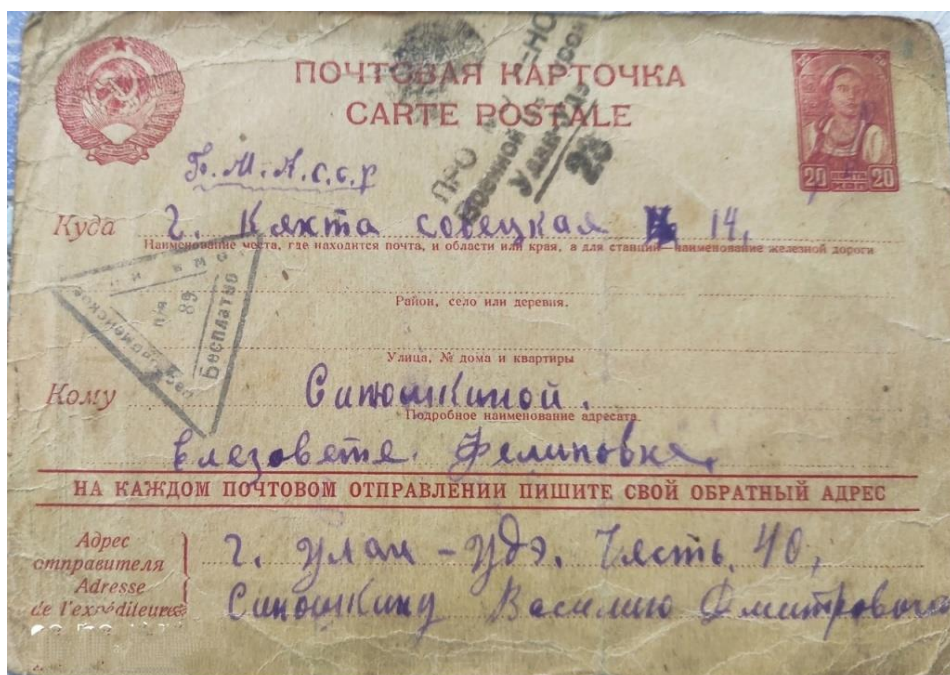 ПОЧТОВАЯ КАРТОЧКА
CARTE POSTALE
ПРО
Военной
Улан-Удэ
23
20 ПОЧТА 20
Б.М.А.с.с.р
Куда г. Кяхта совецкая № 14,
Наименование места, где находится почта, и области или края, а для станций—наименование железной дороги
Красноармейское
п/я 89
Бесплатно
Район, село или деревня.
Улица, № дома и квартиры
Кому Синюшкиной.
Подробное наименование адресата
Елезовете. Фелиповке,
НА КАЖДОМ ПОЧТОВОМ ОТПРАВЛЕНИИ ПИШИТЕ СВОЙ ОБРАТНЫЙ АДРЕС
Адрес отправителя
Adresse de l'expéditeur
г. Улан-Удэ. Часть. 40,
Синюшкину Василию Дмитровичю